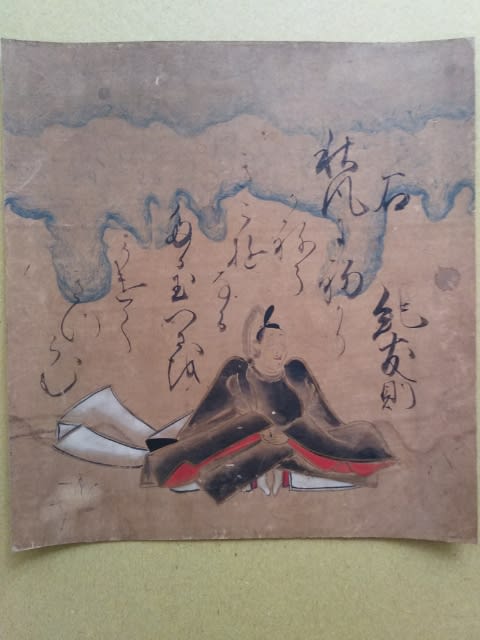 右 紀友則
秋風に初かり
かねそ
きこゆなる
たか玉つさを
かけて
きつらむ